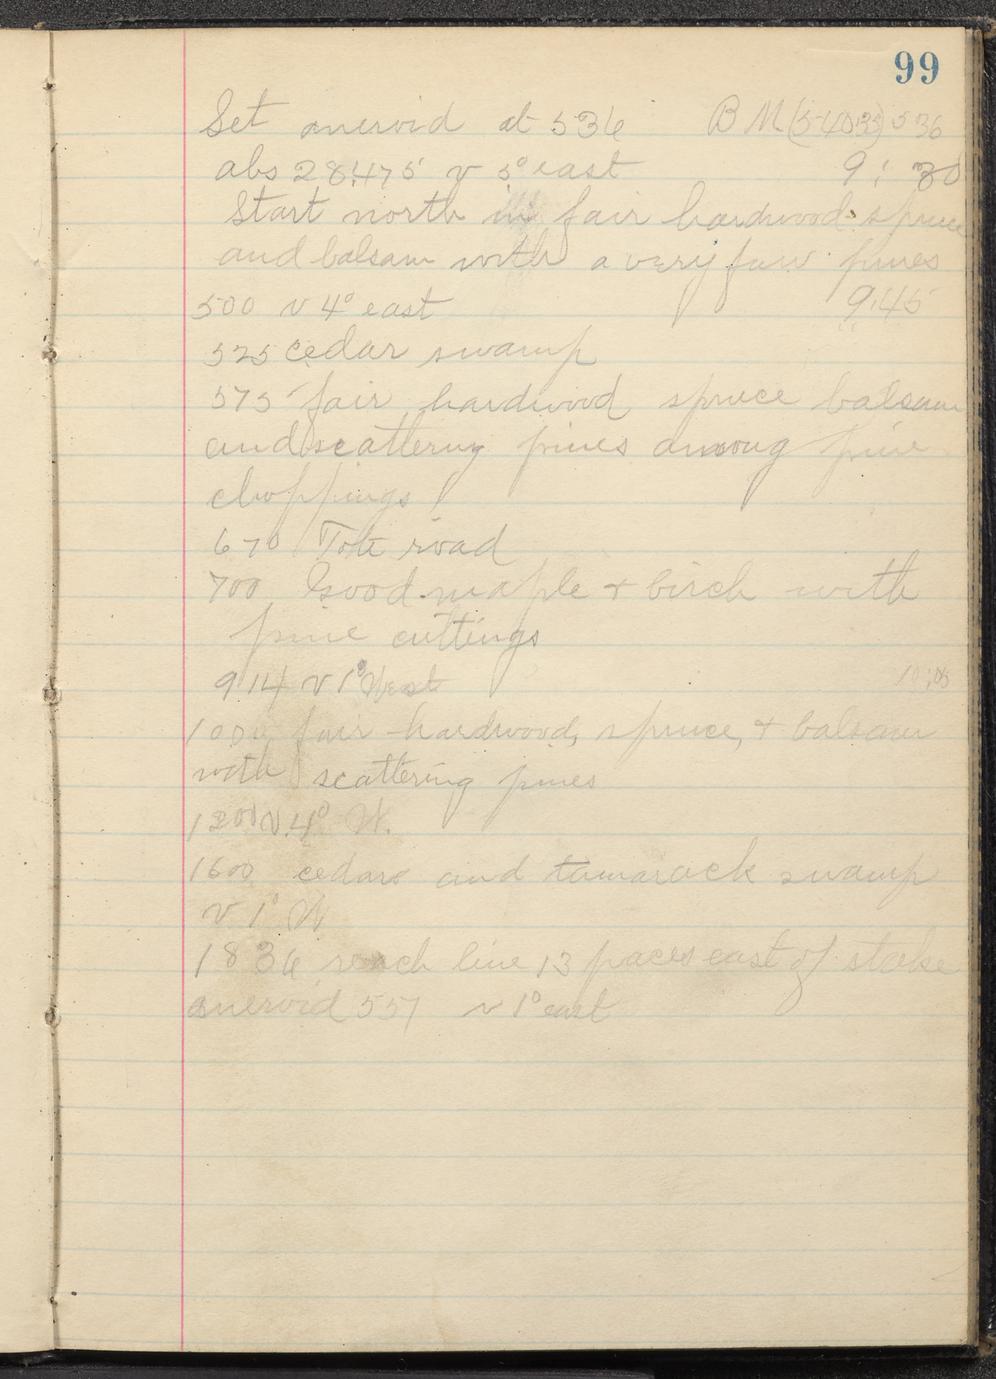 99
Set aneroid at 536 B M (54033) 536
abs 28.475 v 5° east 9:30
Start north in fair hardwood spruce
and balsam with a very few pines
500 v 4° east 9:45
525 cedar swamp
575 fair hardwood spruce balsam
and scattering pines among pine
choppings
670 Tote road
700 Good maple + birch with
pine cuttings
914 v 1° West 10:05
1000 fair hardwood, spruce, + balsam
with scattering pines
1200 v 4° W.
1600 cedar and tamarack swamp
v 1° W
1836 reach line 13 paces east of stake
aneroid 557 v 1° east